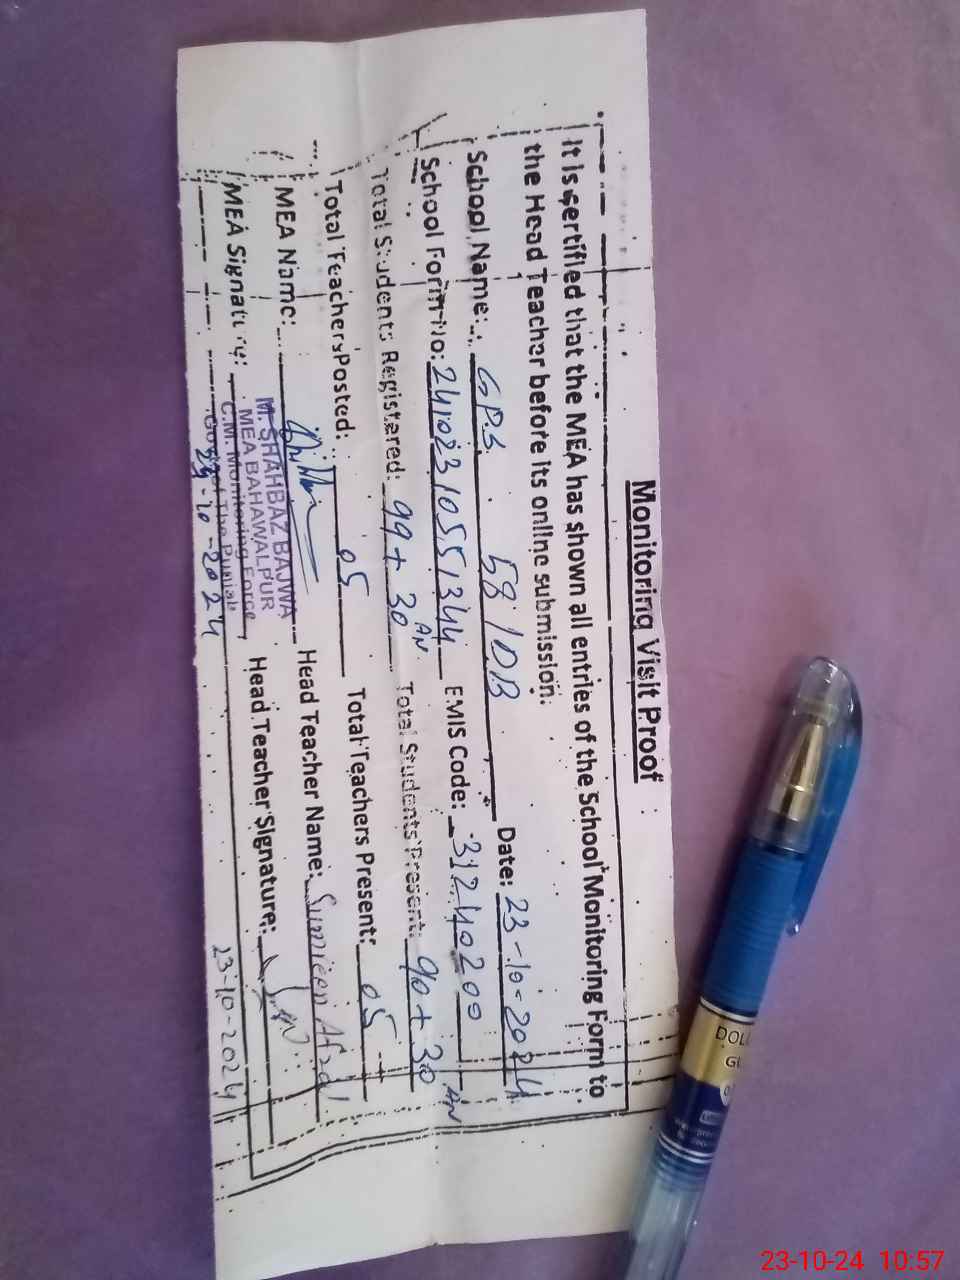 Monitoring Visit Proof
It is certified that the MEA has shown all entries of the School Monitoring Form to
the Head Teacher before its online submission.
School Name: GPS 58/DB Date: 23-10-2024
School Form No: 24102310551344 EMIS Code: 31240209
Total Students Registered: 99 + 30 AN Total Students Present: 90 + 30 AN
Total Teachers Posted: 05 Total Teachers Present: 05
MEA Name: Head Teacher Name: Sumieen Afzal
MEA Signature: Head Teacher Signature:
M. SHAHBAZ BAJWA
MEA BAHAWALPUR
C.M. Monitoring Force
Govt of The Punjab
23-10-2024
23-10-2024
DOLL
23-10-24 10:57